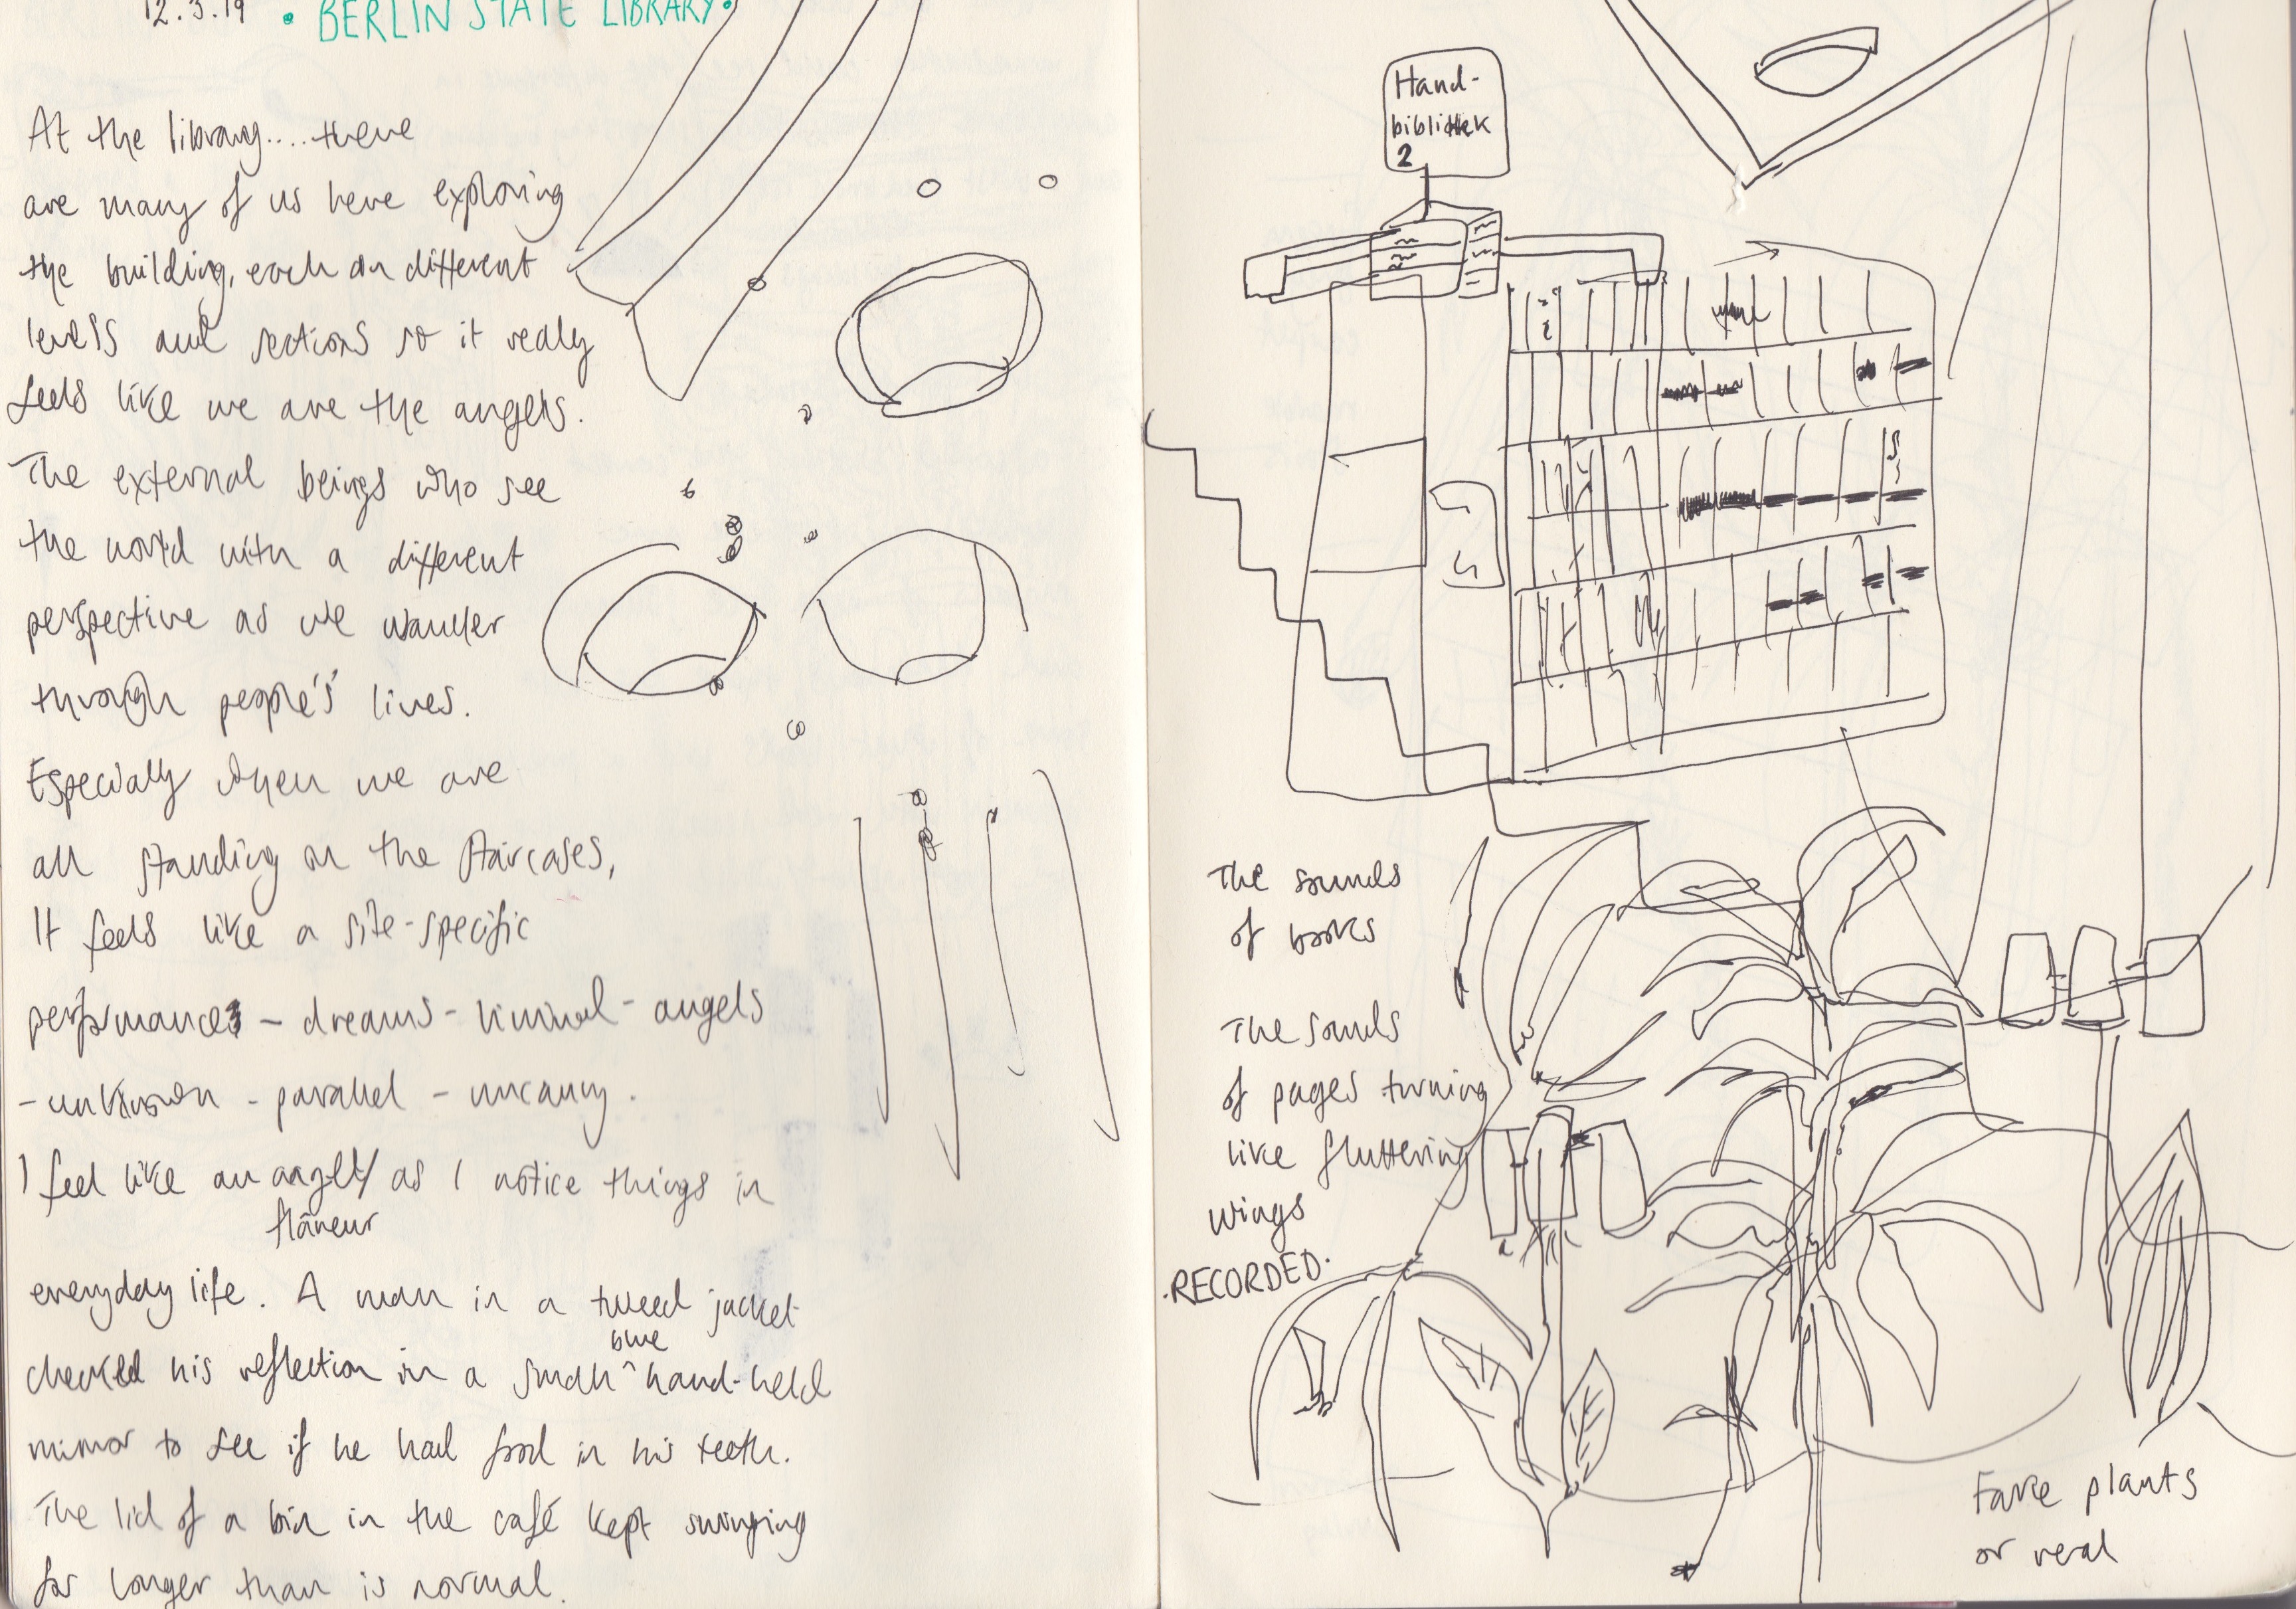 12.3.19 • BERLIN STATE LIBRARY•
At the library....there
are many of us here exploring
the building, each on different
levels and sections so it really
feels like we are the angels.
The external beings who see
the world with a different
perspective as we wander
through people's lives.
Especially when we are
all standing on the staircases,
It feels like a site-specific
performance – dreams - liminal - angels
- unknown - parallel - uncanny.
I feel like an angel/ as I notice things in
flâneur
everyday life. A man in a tweed jacket
blue
checked his reflection in a small ^ hand-held
mirror to see if he had food in his teeth.
The lid of a bin in the café kept swinging
for longer than is normal.
Hand-
bibliothek
2
The sounds
of books
The sounds
of pages turning
like fluttering
wings
.RECORDED.
Fake plants
or real